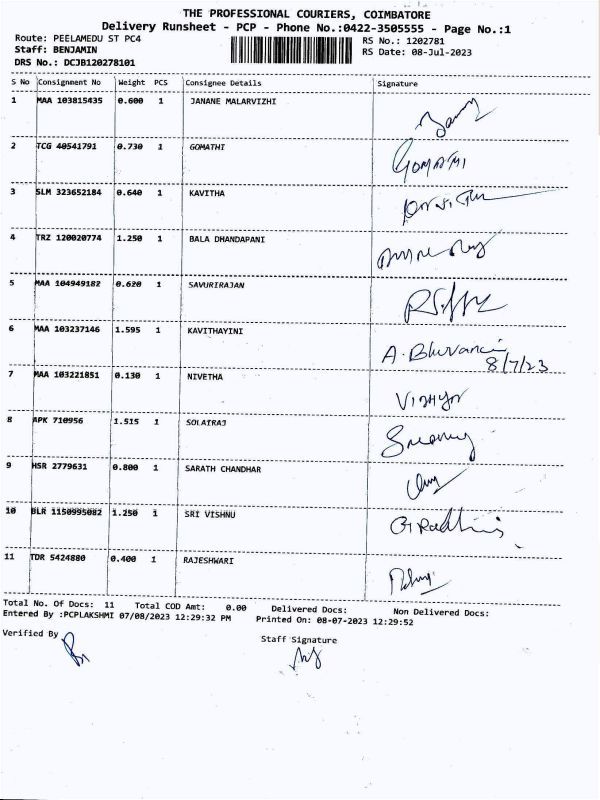 THE PROFESSIONAL COURIERS, COIMBATORE
Delivery Runsheet - PCP - Phone No.:0422-3505555 - Page No.:1
Route: PEELAMEDU ST PC4 RS No.: 1202781
Staff: BENJAMIN RS Date: 08-Jul-2023
DRS No.: DCJB120278101
S No Consignment No Weight PCS Consignee Details Signature
1 MAA 103815435 0.600 1 JANANE MALARVIZHI
2 TCG 40541791 0.730 1 GOMATHI GOMATHI
3 SLM 323652184 0.640 1 KAVITHA
4 TRZ 120020774 1.250 1 BALA DHANDAPANI
5 MAA 104949182 0.620 1 SAVURIRAJAN
6 MAA 103237146 1.595 1 KAVITHAYINI A. Bhuvan
8/7/23
7 MAA 103221851 0.130 1 NIVETHA
8 APK 710956 1.515 1 SOLAIRAJ
9 HSR 2779631 0.800 1 SARATH CHANDHAR
10 BLR 1150995082 1.250 1 SRI VISHNU
11 TDR 5424880 0.400 1 RAJESHWARI
Total No. Of Docs: 11 Total COD Amt: 0.00 Delivered Docs: Non Delivered Docs:
Entered By :PCPLAKSHMI 07/08/2023 12:29:32 PM Printed On: 08-07-2023 12:29:52
Verified By Staff Signature